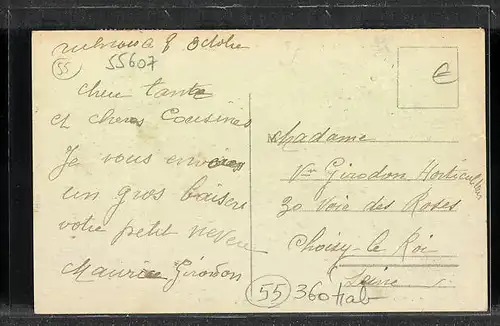 8 octobre
55
55607
cher tante
et cheres Cousines
Je vous envoies
un gros baiser
votre petit neveu
Maurice Girodon
€
Madame
Vve Girodon Horticulteur
30 Voie des Roses
Choisy-le Roi
Seine
55
360 Hab